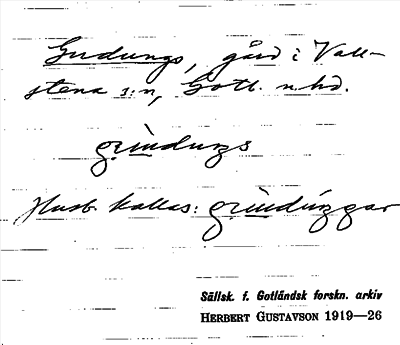 Gudungs, gård i Vall-
stena s:n, Gotl. n. hd.
grindungs
Husb. kallas: grindúŋgar
Sällsk. f. Gotländsk forskn. arkiv
HERBERT GUSTAVSON 1919—26